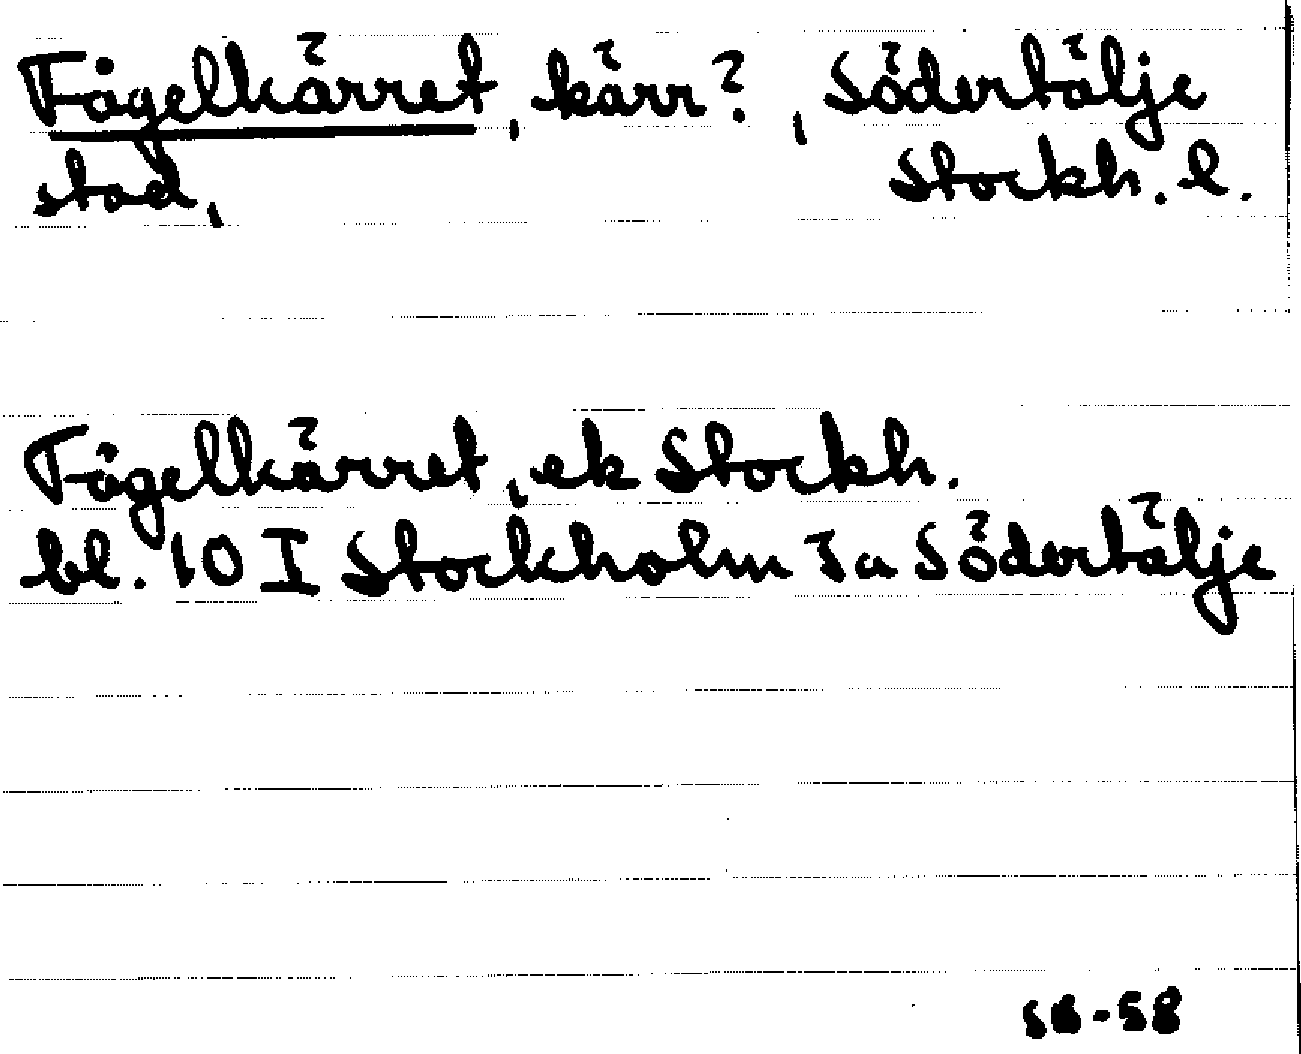 Fågelkärret, kärr?, Södertälje
stad, Stockh. l.
Fågelkärret, ek Stockh.
bl. 10 I Stockholm Ja Södertälje
SB-58